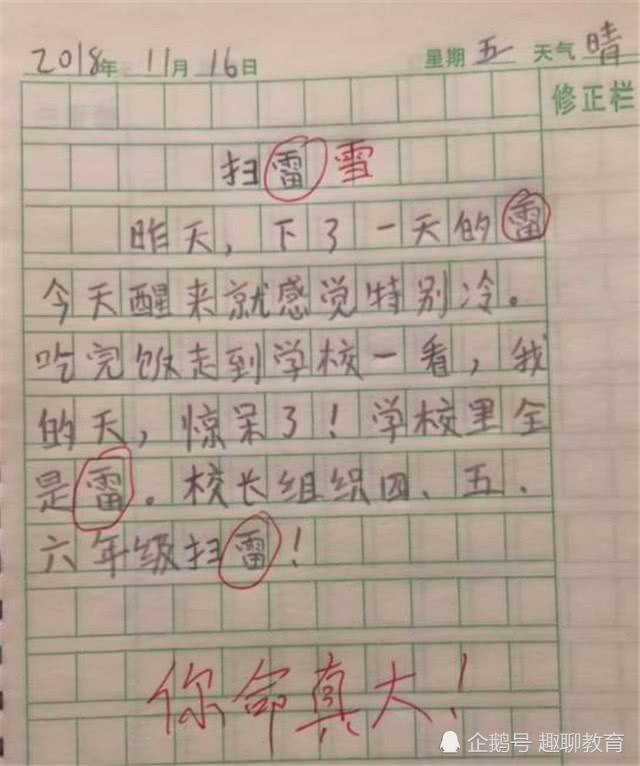 2018年 11月 16日 星期 五 天气 晴
修正栏
扫雷 雪
昨天，下了一天的雷
今天醒来就感觉特别冷。
吃完饭走到学校一看，我
的天，惊呆了！学校里全
是雷。校长组织四、五、
六年级扫雷！
你命真大！
企鹅号 趣聊教育